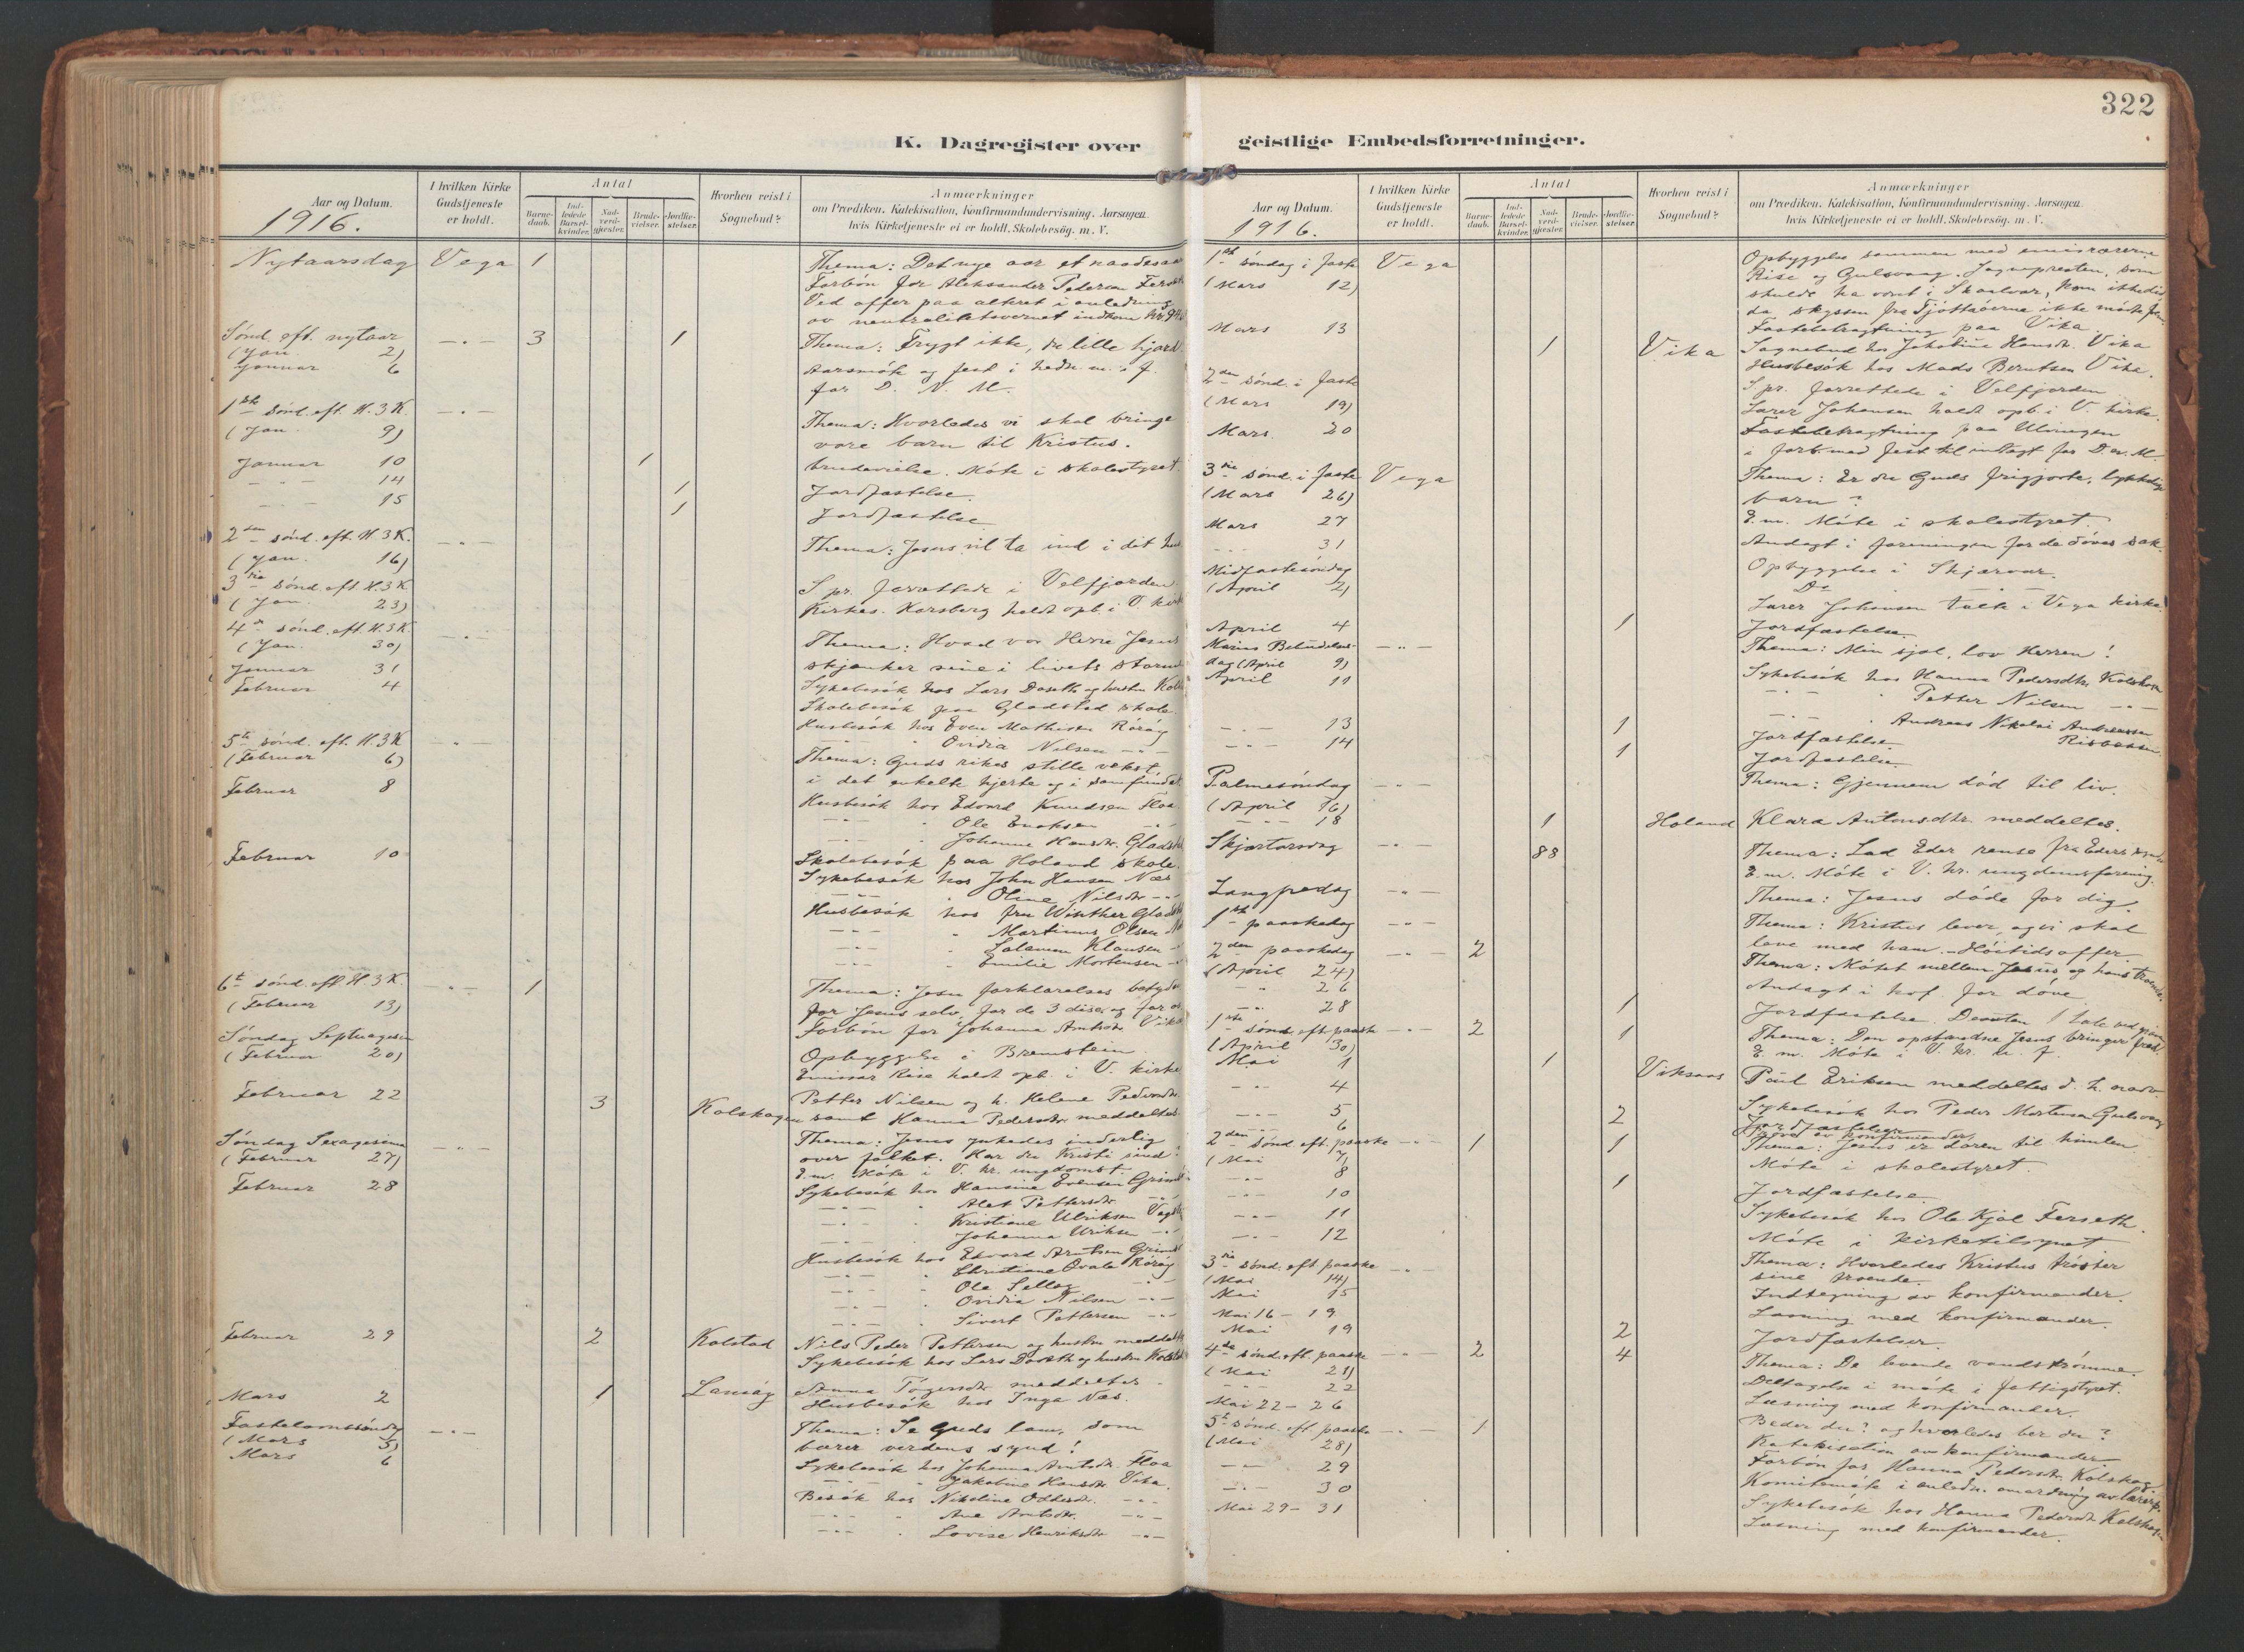 322
K. Dagregister over
geistlige Embedsforretninger.
Aar og Datum.
1916.
I hvilken Kirke Gudstjeneste er holdt.
Antal
Barne-daab.
Ind-ledede Barsel-kvinder.
Nad-verd-gjæster.
Brude-vielser.
Jordfæ-stelser.
Hvorhen reist i Sognebud?
Anmærkninger
om Prædiken, Katekisation, Konfirmandundervisning, Aarsagen
hvis Kirketjeneste ei er holdt, Skolebesög. m. V.
Nytaarsdag Vega 1 Thema: Det nye aar et naadesaar
Forbön for Aleksander Pedersen
Ved offer paa altret i anledning
av neutralitetsvernet indkom kr.
Sönd. eft. nytaar
(Jan. 2) -"- 3 1 Thema: Frygt ikke, du lille hjord.
Januar 6 Aarsmöte og fest i
for D. N. M.
1ste sönd. eft. H.3K. -"-
(Jan. 9) Thema: Hvorledes vi skal bringe
vore barn til Kristus.
Januar 10 1 brudevielse. Möte i skolestyret.
-"- 14 1 Jordfæstelse.
-"- 15 1 Jordfæstelse
2den sönd. eft. H.3K. -"-
(Jan. 16) Thema: Jesus vil ta ind i dit
3die sönd. eft. H.3K
(Jan. 23) S.pr. forrettede i Velfjorden.
Kirkes. Karsberg holdt opb. i V. kirke
4de sönd. eft. H.3K. -"-
(Jan. 30) Thema: Hvad vor Herre Jesus
skjænker sine i livets storme
Januar 31 Sykebesök hos Lars Doseth og hustru
Februar 4 Skolebesök paa Gladstad skole
Husbesök hos Even Mathisen Röröy
-"- Ovidia Nilsen -"-
5te sönd. eft. H.3K -"-
(Februar 6) Thema: Guds rikes stille vekst
i det enkelte hjerte og i samfundet.
Februar 8 Husbesök hos Edvard Knudsen Floa
-"- Ole Enoksen -"-
-"- Johanne Hansdtr. Gladstad
Februar 10 Skolebesök paa Holand skole.
Sykebesök hos John Hansen Næs
-"- Oline Nilsdtr -"-
Husbesök hos fru Winther Gladstad
-"- Martinus Olsen
-"- Salamon Klausen -"-
-"- Emilie Mortensen -"-
6te sönd. eft H.3K. -"- 1
(Februar 13) Thema: Jesu forklarelses betydning
for Jesus selv, for de 3 disc. og for os
Forbön for Johanna Arntsdr. Vika
Söndag Septuagesima
(Februar 20) Opbyggelse i Bremstein
Emissær Rise holdt opb. i V. kirke
Februar 22 3 Kolskogen Petter Nilsen og h. Helene Pedersdtr.
samt Hanna Pedersdtr. meddeltes.
Söndag Sexagesima -"-
(Februar 27) Thema: Jesus ynkedes inderlig
over folket. Har du Kristi sind?
E.m. Möte i V. kr. ungdomsf.
Februar 28 Sykebesök hos Hansine Evensen
-"- Alet Pettersdtr. -"-
-"- Kristiane Ulriksen
-"- Johanna Ulriksen -"-
Husbesök hos Edvard Arntsen
-"- Christiane Röröy
-"- Ole -"-
-"- Ovidia Nilsen -"-
-"- Sivert Pettersen -"-
Februar 29 2 Kolstad Nils Peder Pettersen og hustru meddeltes
Sykebesök hos Lars Doseth og hustru Kolstad
Mars 2 1 Anna meddeltes.
Husbesök hos Inga Næs.
Fastelavnssöndag
(Mars 5) -"- Thema: Se Guds lam, som
bærer verdens synd!
Mars 6 Sykebesök hos Johanna Arntsdr. Floa
-"- Jakobine Hansdtr Vika.
Besök hos Nikoline -"-
-"- Ane Arntsdtr. -"-
-"- Lovise Henriksdtr -"-
Aar og Datum.
1916.
I hvilken Kirke Gudstjeneste er holdt.
Antal
Barne-daab.
Ind-ledede Barsel-kvinder.
Nad-verd-gjæster.
Brude-vielser.
Jordfæ-stelser.
Hvorhen reist i Sognebud?
Anmærkninger
om Prædiken, Katekisation, Konfirmandundervisning, Aarsagen
hvis Kirketjeneste ei er holdt, Skolebesög. m. V.
1ste söndag i faste Vega Opbyggelse sammen med emissærerne
(Mars 12) Rise og Gulsvaag. Sognepresten, som
skulde ha været i Skaalvær, kom ikke dit
da skyssen fra Tjöttaöerne ikke mötte frem.
Mars 13 Fastebetragtning paa Vika.
1 Vika Sognebud hos Jakobine Hansdtr. Vika
Husbesök hos Mads Berntsen Vika.
2den sönd. i faste
(Mars 19) S.pr. forrettede i Velfjorden
Lærer Johansen holdt opb. i V. kirke.
Mars 20 Fastebetragtning paa
i forb. med fest til indtægt for D. N. M.
3die sönd. i faste Vega
(Mars 26) Thema: Er du Guds frigjorte, lykkelige
barn?
Mars 27 E.m. Möte i skolestyret.
-"- 31 Andagt i foreningen for de döves sak.
Midfastesöndag Opbyggelse i Skjærvær.
(April 2) Do -"-
Lærer Johansen talte i Vega kirke.
April 4 1 Jordfæstelse.
Mariæ Budskaps-
dag (April 9) -"- Thema: Min sjæl, lov Herren!
April 11 Sykebesök hos Hanna Pedersdtr. Kolskogen
-"- Petter Nilsen -"-
-"- Andreas Nikolai Andreassen
-"- 13 1 Jordfæstelse.
-"- 14 1 Jordfæstelse.
Palmesöndag -"-
(April 16) Thema: Gjennem död til liv.
-"- 18 1 Holand Klara Antonsdtr. meddeltes.
Skjærtorsdag -"- 88 Thema: Lad Eder rense fra Eders synder
E.m. Möte i V. kr. ungdomsforening.
Langfredag -"- Thema: Jesus döde for dig.
1ste paaskedag -"- Thema: Kristus lever, og vi skal
leve med ham. Höitidsoffer.
2den paaskedag -"- 2
(April 24) Thema: Mötet mellem Jesus og hans
-"- 26 Andagt i kof. for döve
-"- 28 1 Jordfæstelse.
1ste sönd. eft paaske -"- 2 1
(April 30) Thema: Den opstandne Jesus bringer fred.
E.m. Möte i V. kr. u. f.
Mai 1 1 Viksaas Paul Eriksen meddeltes d. h. nadv.
-"- 4 Sykebesök hos Peder Mortensen Gulsvaag
-"- 5 2 Jordfæstelser
-"- 6 Prøve av konfirmander
2den sönd. eft. paaske -"- 1 1
(Mai 7) Thema: Jesus er dören til himlen.
-"- 8 Möte i skolestyret.
-"- 10 1 Jordfæstelse.
-"- 11 Sykebesök hos Ole Kjöl Ferseth.
-"- 12 Möte i kirketilsynet
3die sönd. eft paaske -"-
(Mai 14) Thema: Hvorledes Kristus tröster
sine troende.
Mai 15 Indtegning av konfirmander.
Mai 16 - 19 Læsning med konfirmander.
Mai 19 2 Jordfæstelser.
4de sönd. eft. paaske -"- 2 4
(Mai 21) Thema: De levende vandströmme.
-"- 22 Deltagelse i möte i fattigstyret.
Mai 22 - 26 Læsning med konfirmander.
5te sönd. eft paaske -"- 1
(Mai 28) Beder du? og hvorledes ber du?
Katekisation av konfirmander
Forbön for Hanna Pedersdtr. Kolskog
-"- 29 Komitemöte i anledn. omordning av lærerp.
-"- 30 Sykebesök hos Hanna Pedersdtr Kolskogen
Mai 29 - 31 Læsning med konfirmander.